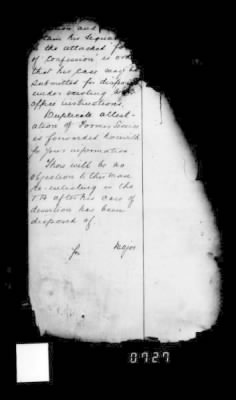 and
his
in the attached
of confession is
that his case may be
submitted for
under existing
office instructions.
Duplicate attest-
ation of Former Service
is forwarded herewith
for your information.
There will be no
objection to this man
re-enlisting in the
T.A after his case of
desertion has been
disposed of.
for Major
0727